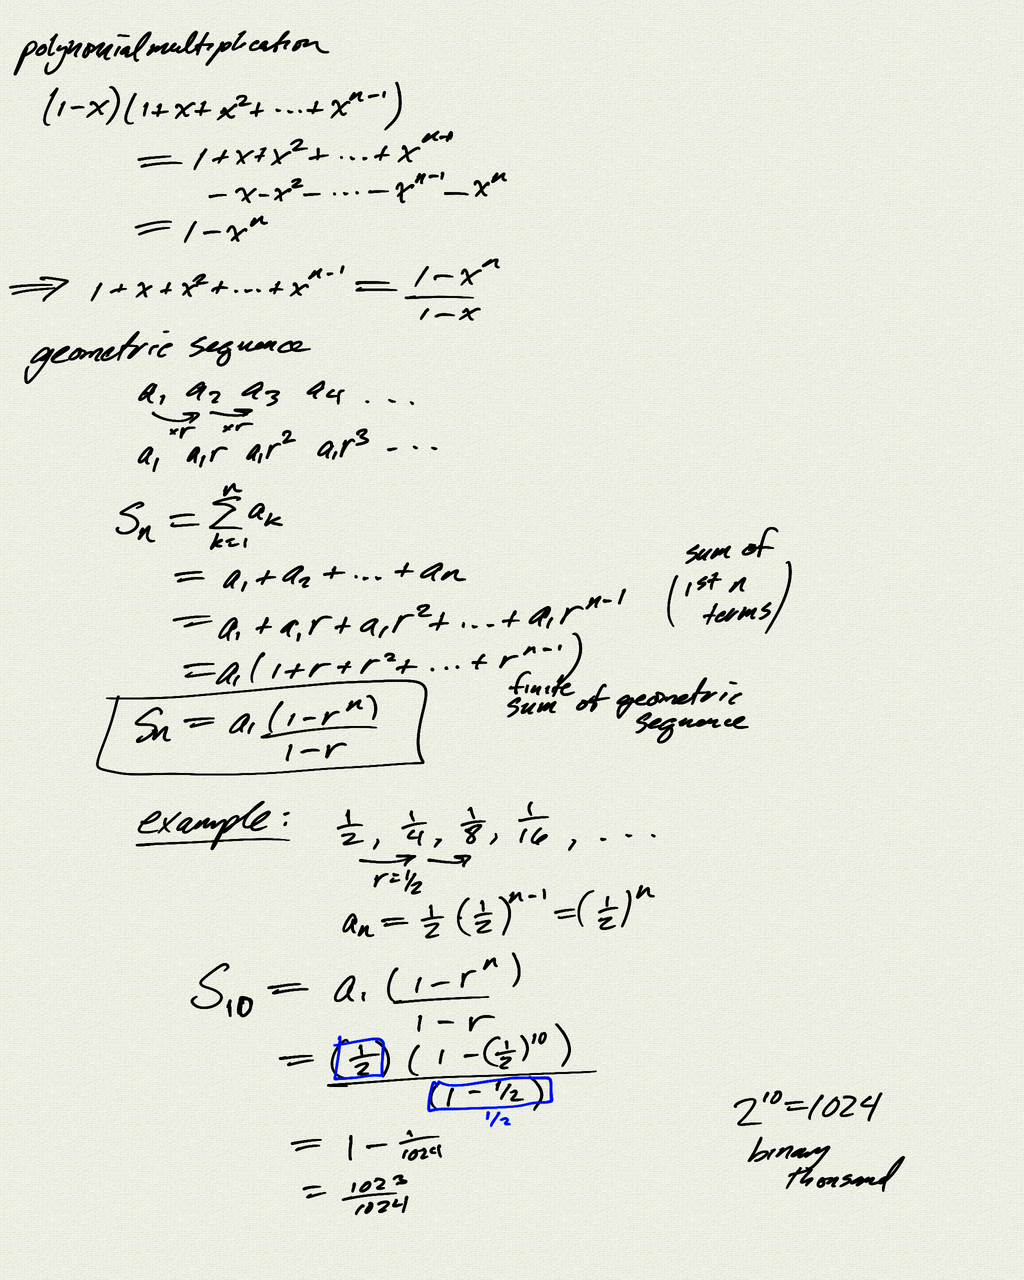 polynomial multiplication
(1-x)(1+x+x²+...+xⁿ⁻¹)
= 1+x+x²+...+xⁿ⁻¹
-x-x²-...-xⁿ⁻¹-xⁿ
= 1-xⁿ
⇒ 1+x+x²+...+xⁿ⁻¹ = (1-xⁿ)/(1-x)
geometric sequence
a₁ a₂ a₃ a₄ ...
×r ×r
a₁ a₁r a₁r² a₁r³ ...
Sₙ = ∑ₖ₌₁ⁿ aₖ
= a₁+a₂+...+aₙ
(sum of
1st n
terms)
= a₁+a₁r+a₁r²+...+a₁rⁿ⁻¹
= a₁(1+r+r²+...+rⁿ⁻¹)
Sₙ = a₁ (1-rⁿ)/(1-r)
finite
sum of geometric
sequence
example: 1/2, 1/4, 1/8, 1/16, ...
r=1/2
aₙ = 1/2 (1/2)ⁿ⁻¹ = (1/2)ⁿ
S₁₀ = a₁ (1-rⁿ)/(1-r)
= (1/2) (1-(1/2)¹⁰)/(1-1/2)
1/2
= 1 - 1/1024
= 1023/1024
2¹⁰=1024
binary
thousand